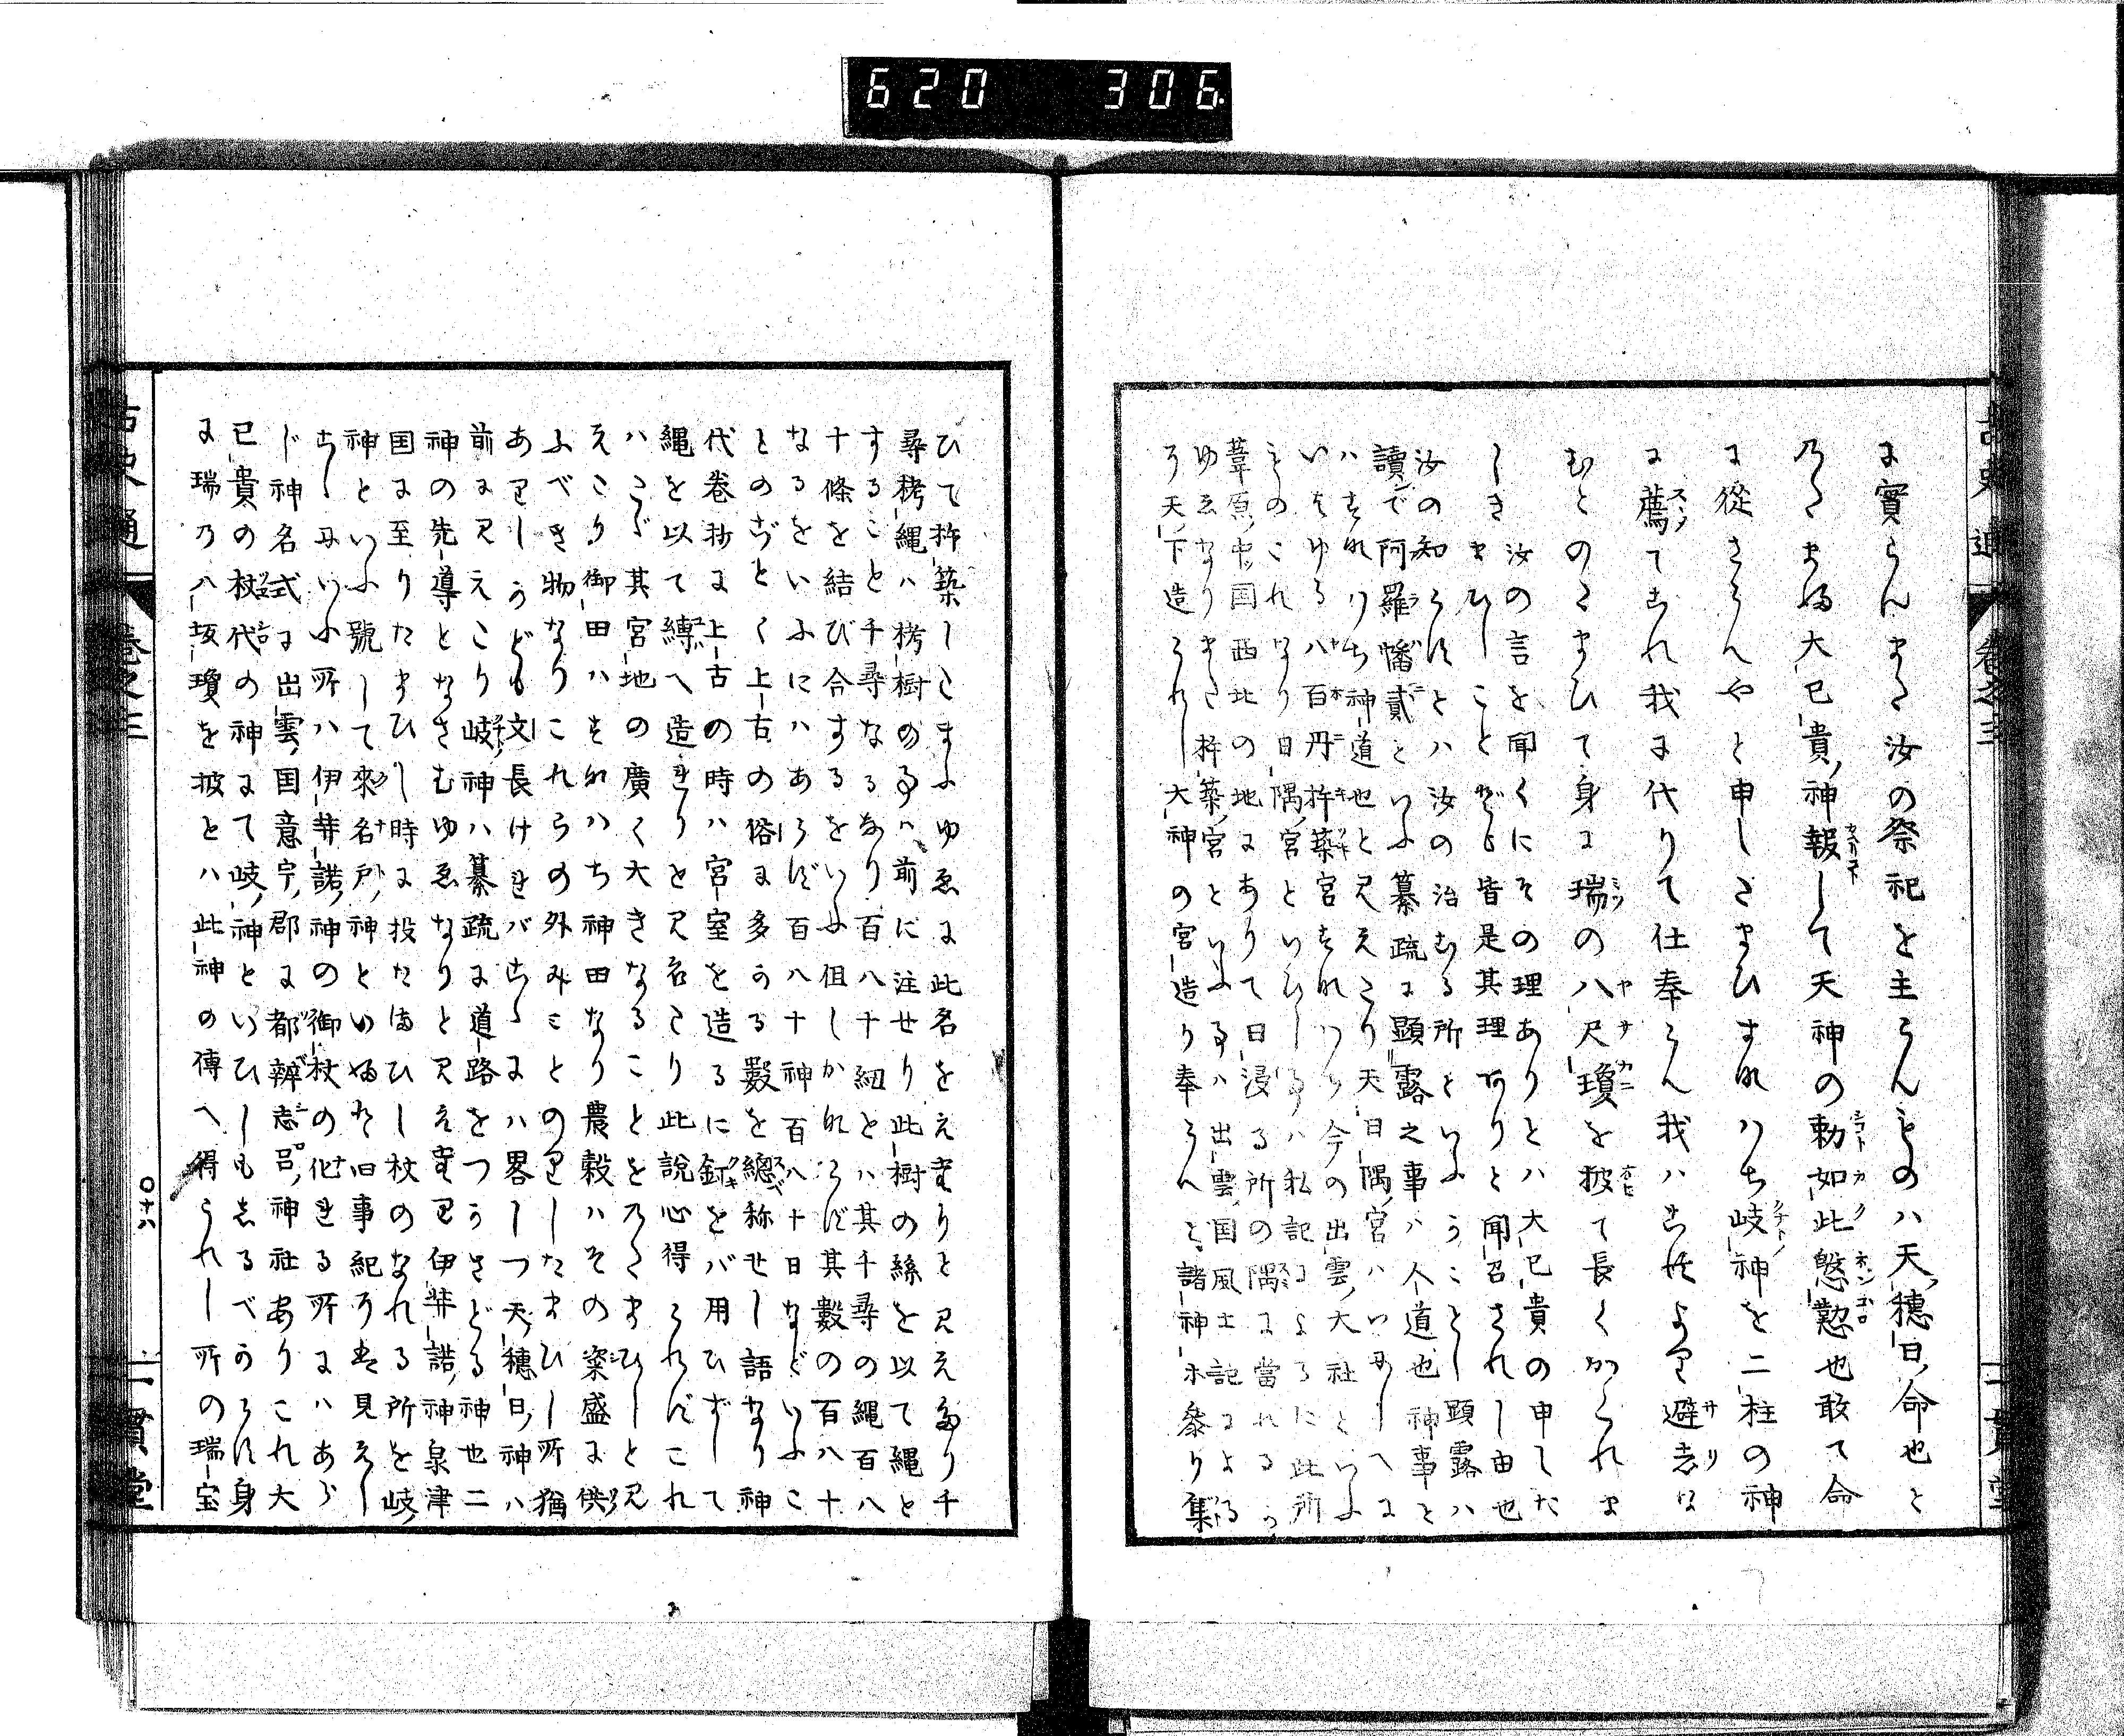 620 306
古史通 卷之三 一貫堂
に實らんまた汝の祭祀を主らんものハ天穗日命也と
のたまふ大己貴神報して天神の勅如此慇懃也敢て命
に從さらんやと申したまひすなハち岐神を二柱の神
に薦てこれ我に代りて仕奉らん我ハこゝより避去な
むとのたまひて身に瑞の八尺瓊を披て長くかくれま
しきまひしことゞも皆是其理ありと聞召されし由也
汝の言を聞くにその理ありとハ大己貴の申した
汝の知らすとハ汝の治むる所といふうことし顕露ハ
讀で阿羅幡貳といふ纂疏に顯露之事ハ人道也神事と
ハすなハち神道也と見えたり天日隅宮ハいにしへに
いはゆる八百丹杵築宮すなハち今の出雲大社といふ
ものこれなり日隅宮といひしハ私記によるに此所
葦原中国西北の地にありて日浸る所の隅に當れる
ゆゑなりまた杵築宮といふ事ハ出雲国風土記による
に天下造られし大神の宮造り奉らんと諸神ホ參り集
ひて杵築したまふゆゑに此名をえたりと見えたり千
尋栲縄ハ栲樹の事ハ前に注せり此樹の絲を以て縄と
すること千尋なるあり百八十紐とハ其千尋の縄百八
十條を結び合するをいふ但しかれらず其數の百八十
なるをいふにハあらず百八十神百八十日などいふこ
とのごとく上古の俗に多かる數を總称せし語なり神
代卷抄に上古の時ハ宮室を造るに釘をバ用ひずして
縄を以て縛へ造れりと見えたり此說心得られずこれ
ハたゞ其宮地の廣く大きなることをのたまひしと見
えたり御田ハすなハち神田なり農穀ハその粢盛に供
ふべき物なりこれらの外みことのりしたまひし所猶
ありしうども文長けれバこゝにハ畧しつ天穗日神ハ
前に見えたり岐神ハ纂疏に道路をつかさどる神也二
神の先導となさむゆゑなりと見えたり伊弉諾神泉津
国に至りたまひし時に投たまひし杖のなれる所を岐
神といふ號して來名戸神といふ舊事紀にも見えし
こゝにいふ所ハ伊弉諾神の御杖の化れる所にハあら
ド神名式に出雲国意宇郡に都辨志呂神社ありこれ大
已貴の杖代の神にて岐神といひしもしるべからす身
に瑞の八坂瓊を披とハ此神の傳へ得られし所の瑞宝
古史通 卷之三 〇十八 一貫堂